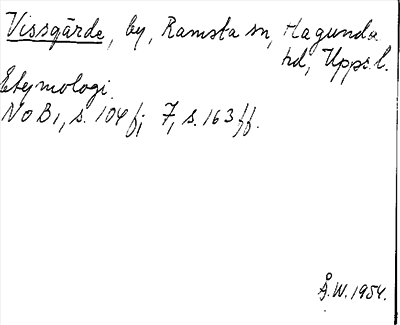 Vissgärde, by, Ramsta sn, Hagunda
hd, Upps.l.
Etymologi.
NoB 1, s. 104 f; 7, s. 163 ff.
Å.W. 1954.